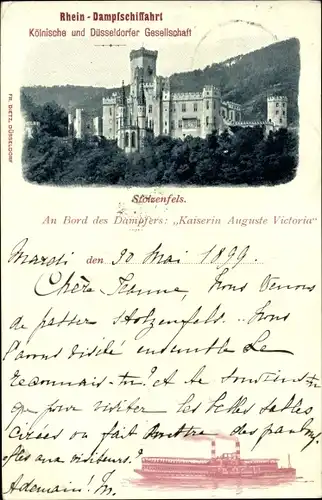 Rhein - Dampfschiffahrt
Kölnische und Düsseldorfer Gesellschaft
FR. DIETZ, DÜSSELDORF
Stolzenfels.
An Bord des Dampfers: „Kaiserin Auguste Victoria"
Mardi den 30 Mai 1899.
Chère Jeanne, Nous venons
de passer Stolzenfels... Nous
l'avons visité ensemble. Le
reconnais-tu? et te souviens-tu
que pour visiter les belles salles
cirées on fait mettre des pantou-
fles aux visiteurs?
A demain! M.